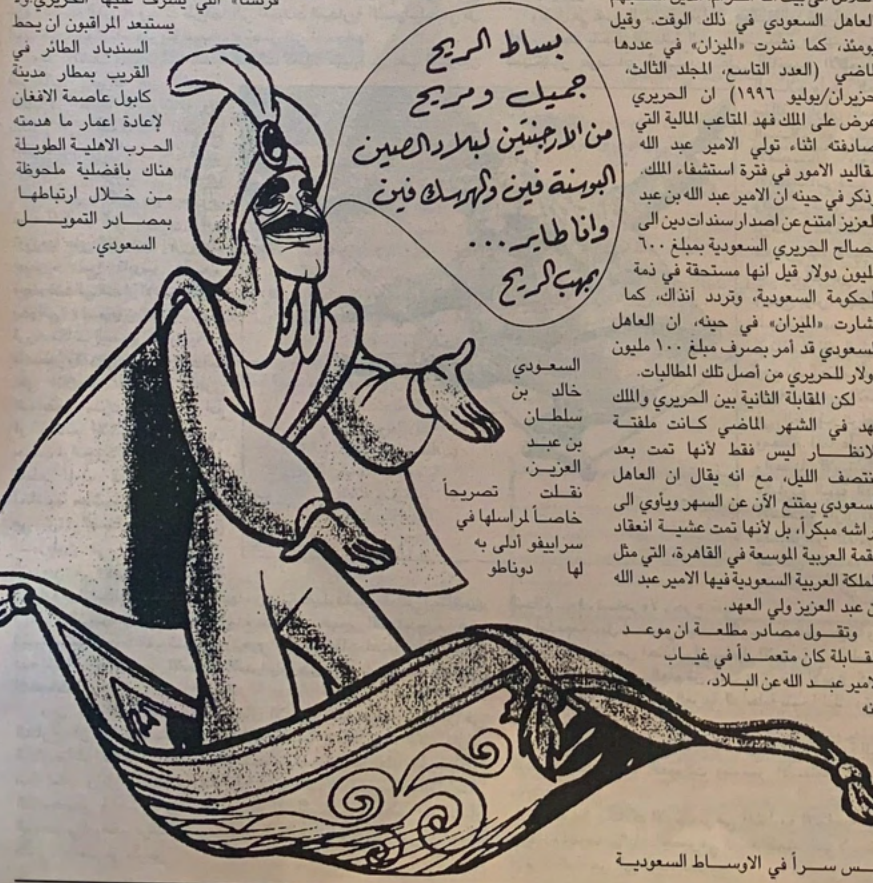 العاهل السعودي في ذلك الوقت. وقيل
يومئذ، كما نشرت «الميزان» في عددها
الماضي (العدد التاسع، المجلد الثالث،
حزيران/يوليو ١٩٩٦) ان الحريري
عرض على الملك فهد المتاعب المالية التي
صادفته اثناء تولي الامير عبد الله
مقاليد الامور في فترة استشفاء الملك.
وذكر في حينه ان الامير عبد الله بن عبد
العزيز امتنع عن اصدار سندات دين الى
لصالح الحريري السعودية بمبلغ ٦٠٠
مليون دولار قيل انها مستحقة في ذمة
الحكومة السعودية، وتردد آنذاك، كما
أشارت «الميزان» في حينه، ان العاهل
السعودي قد أمر بصرف مبلغ ١٠٠ مليون
دولار للحريري من أصل تلك المطالبات.
لكن المقابلة الثانية بين الحريري والملك
فهد في الشهر الماضي كانت ملفتة
للانظار ليس فقط لأنها تمت بعد
منتصف الليل، مع انه يقال ان العاهل
السعودي يمتنع الآن عن السهر ويأوي الى
فراشه مبكراً، بل لأنها تمت عشية انعقاد
القمة العربية الموسعة في القاهرة، التي مثل
المملكة العربية السعودية فيها الامير عبد الله
بن عبد العزيز ولي العهد.
وتقول مصادر مطلعة ان موعد
المقابلة كان متعمداً في غياب
الامير عبد الله عن البلاد،
ـس سراً في الاوساط السعودية
بساط الريح
جميل ومريح
من الارجنتين لبلاد الصين
البوسنة فين والهرسك فين
وانا طاير...
بمهب الريح
السعودي
خالد بن
سلطان
بن عبد
العزيز،
نقلت تصريحاً
خاصاً لمراسلها في
سراييفو أدلى به
لها دوناطو
فرنسا» التي يشرف عليها الحريري. ولا
يستبعد المراقبون ان يحط
السندباد الطائر في
القريب بمطار مدينة
كابول عاصمة الافغان
لإعادة اعمار ما هدمته
الحرب الاهلية الطويلة
هناك بافضلية ملحوظة
من خلال ارتباطها
بمصادر التمويل
السعودي.